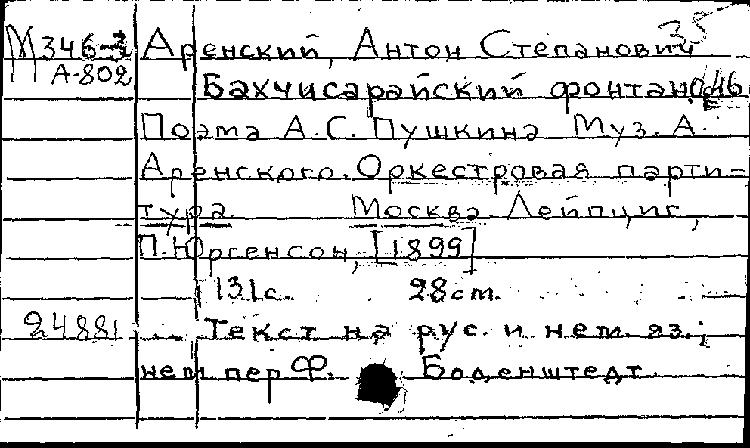 35
М346-3 Аренский, Антон Степанович
А-802
Бахчисарайский фонтан, ор. 46
Поэма А.С. Пушкина Муз. А.
Аренского. Оркестровая парти-
тура. Москва-Лейпциг,
П. Юргенсон, [1899]
131с. 28см.
24881 Текст на рус. и нем. яз.;
нем пер Ф. Боденштедт